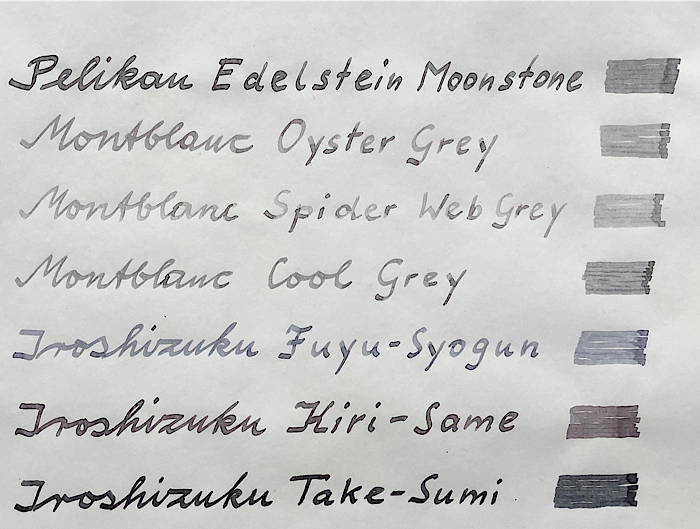 Pelikan Edelstein Moonstone
Montblanc Oyster Grey
Montblanc Spider Web Grey
Montblanc Cool Grey
Iroshizuku Fuyu-Syogun
Iroshizuku Kiri-Same
Iroshizuku Take-Sumi